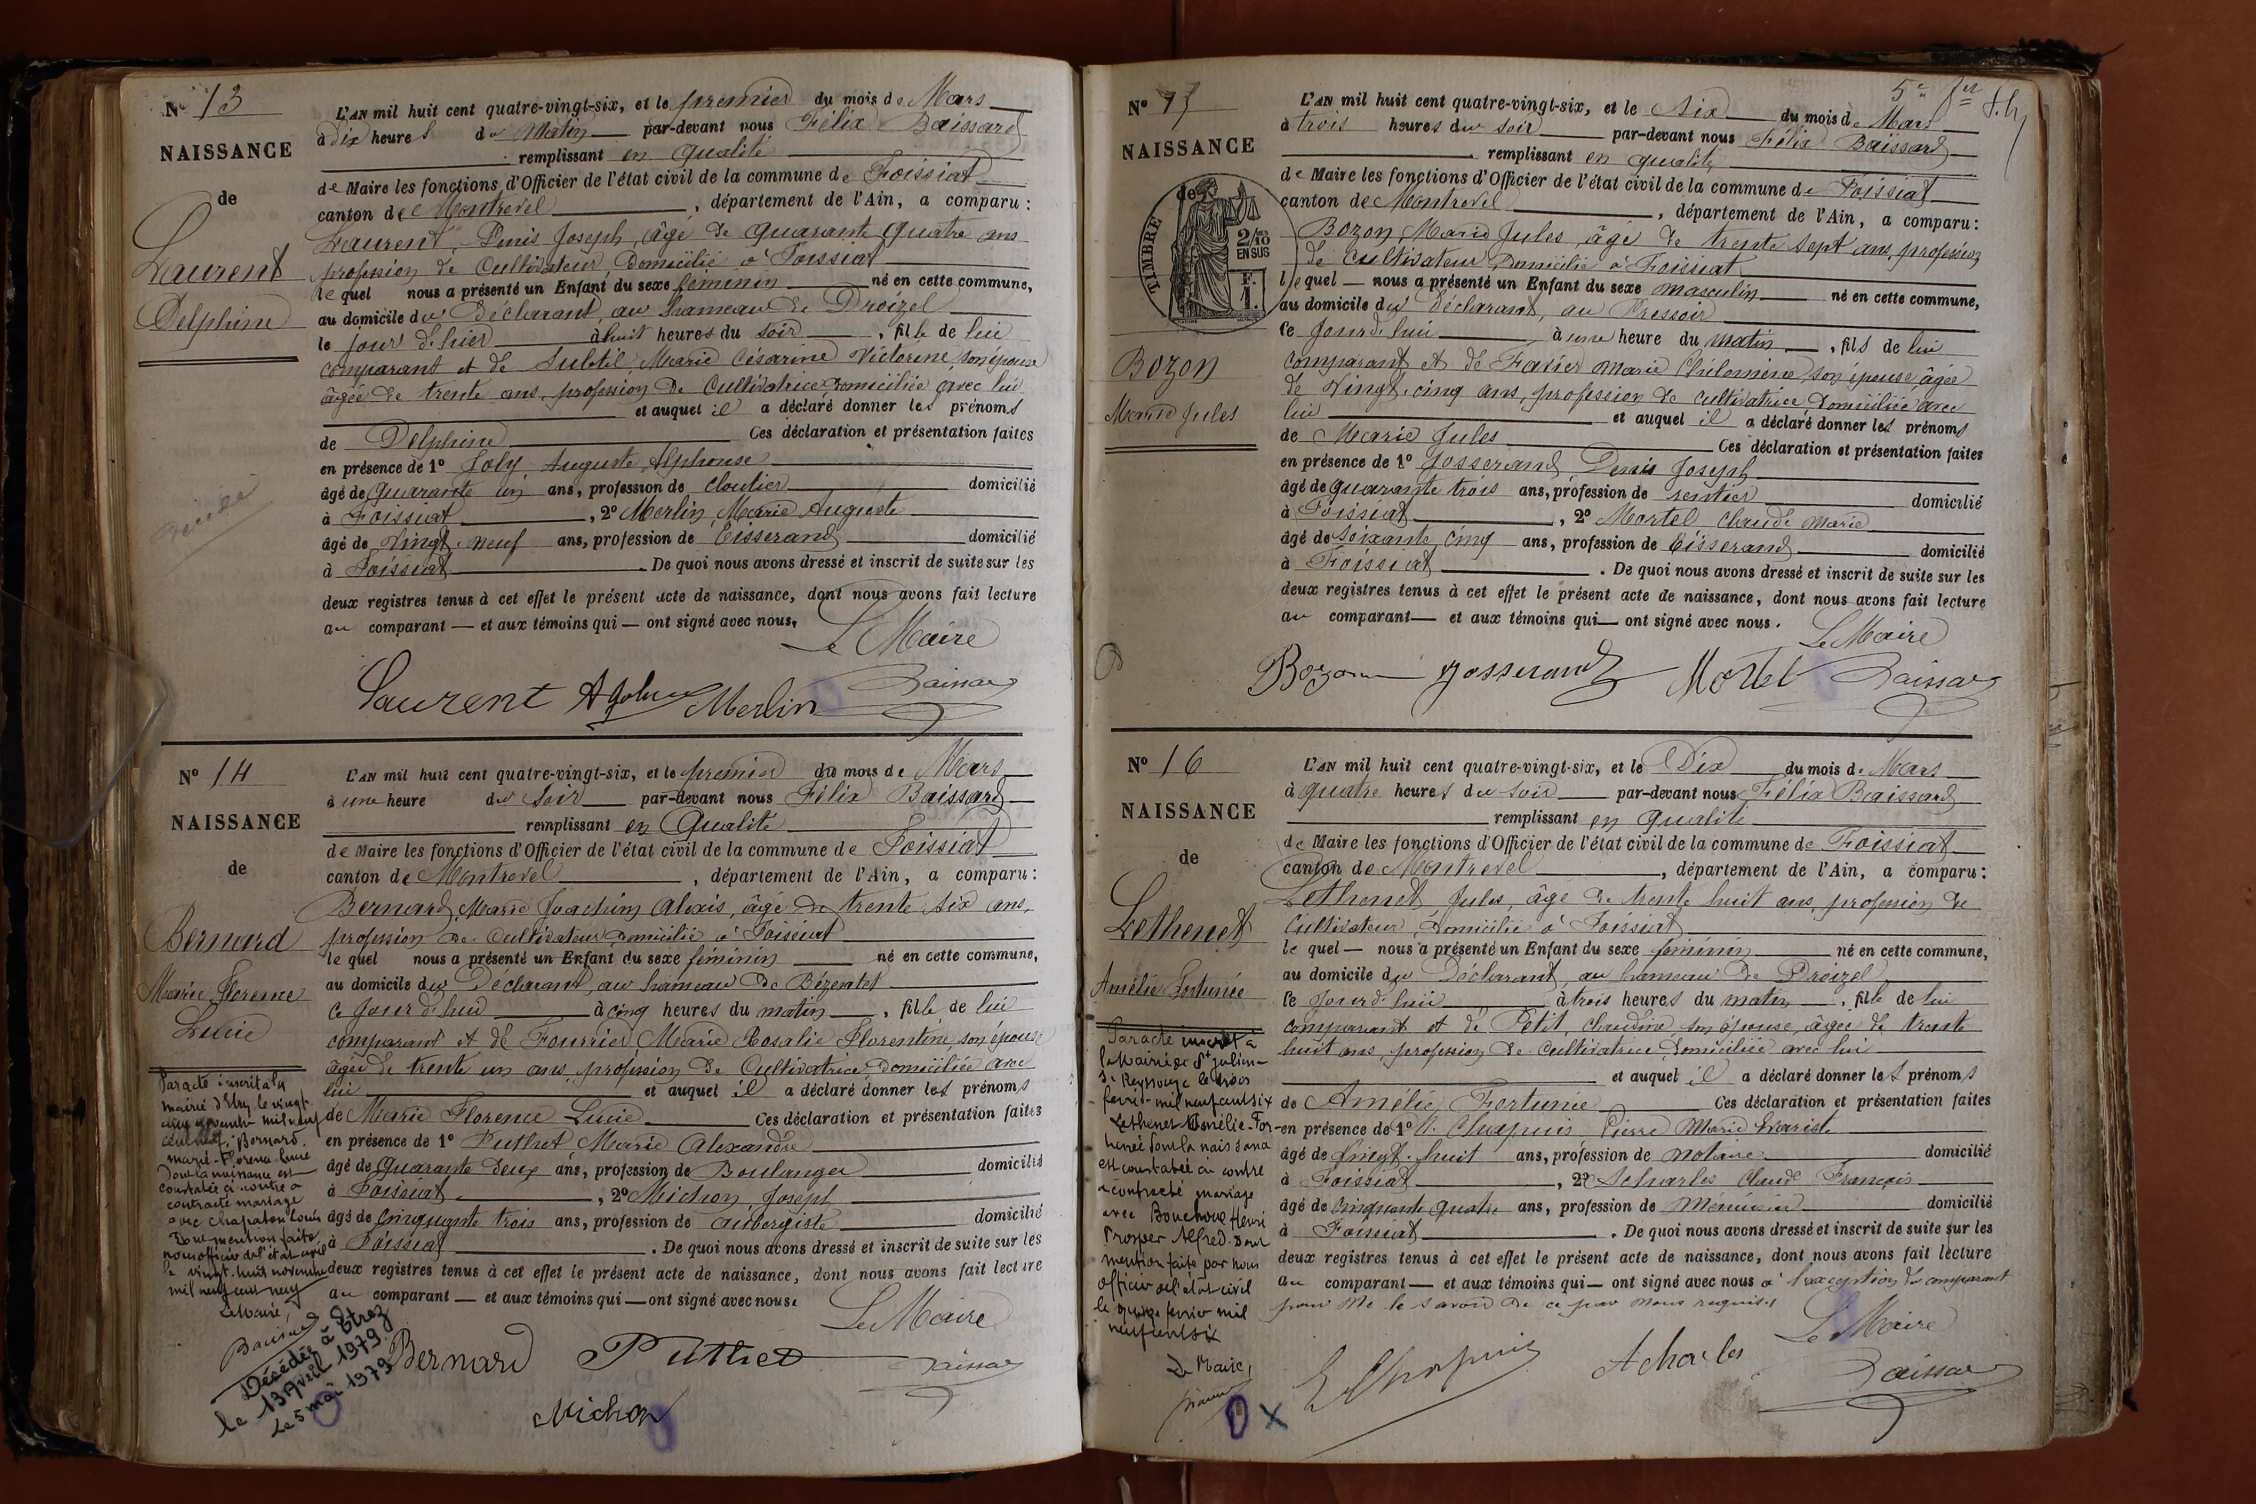 N° 13
NAISSANCE
de
Laurent
Delphine
L'AN mil huit cent quatre-vingt-six, et le premier du mois de Mars
à dix heures du matin par-devant nous Félix Baissard
remplissant en qualité
de Maire les fonctions d'Officier de l'état civil de la commune de Foissiat
canton de Montrevel, département de l'Ain, a comparu :
Laurent, Denis Joseph, âgé de quarante quatre ans
profession de Cultivateur domicilié à Foissiat
lequel nous a présenté un Enfant du sexe féminin né en cette commune,
au domicile du Déclarant, au hameau de Droizel
le jour d'hier à huit heures du soir, fille de lui
comparant et de Subtil Marie Césarine Victorine, son épouse
âgée de trente ans, profession de Cultivatrice domiciliée avec lui
et auquel il a déclaré donner les prénoms
de Delphine Ces déclaration et présentation faites
en présence de 1° Joly Auguste Alphonse
âgé de quarante un ans, profession de cloutier domicilié
à Foissiat, 2° Merlin Marie Auguste
âgé de vingt-neuf ans, profession de Tisserand domicilié
à Foissiat. De quoi nous avons dressé et inscrit de suite sur les
deux registres tenus à cet effet le présent acte de naissance, dont nous avons fait lecture
au comparant — et aux témoins qui — ont signé avec nous.
Le Maire
Laurent A Joly Merlin Baissard
N° 14
NAISSANCE
de
Bernard
Marie Florence
Lucie
L'AN mil huit cent quatre-vingt-six, et le premier du mois de Mars
à une heure du soir par-devant nous Félix Baissard
remplissant en Qualité
de Maire les fonctions d'Officier de l'état civil de la commune de Foissiat
canton de Montrevel, département de l'Ain, a comparu :
Bernard, Marie Joachim Alexis, âgé de trente six ans,
profession de Cultivateur domicilié à Foissiat
lequel nous a présenté un Enfant du sexe féminin né en cette commune,
au domicile du Déclarant, au hameau de Bézentet
ce jourd'hui à cinq heures du matin, fille de lui
comparant et de Fourrier Marie Rosalie Florentine, son épouse
âgée de trente un ans, profession de Cultivatrice, domiciliée avec
lui et auquel il a déclaré donner les prénoms
de Marie Florence Lucie Ces déclaration et présentation faites
en présence de 1° Puthet Marie Alexandre
âgé de quarante deux ans, profession de Boulanger domicilié
à Foissiat, 2° Michon Joseph
âgé de cinquante trois ans, profession de aubergiste domicilié
à Foissiat. De quoi nous avons dressé et inscrit de suite sur les
deux registres tenus à cet effet le présent acte de naissance, dont nous avons fait lecture
au comparant — et aux témoins qui — ont signé avec nous.
Le Maire
Bernard Puthet Baissard
Michon
Par acte inscrit à la
mairie d'Etrez le vingt-
cinq novembre mil neuf
cent neuf, Bernard
Marie-Florence Lucie
dont la naissance est
constatée ci contre a
contracté mariage
avec Chapaton Louis
Dont mention faite
nous officier de l'état civil
le vingt-huit novembre
mil neuf cent neuf
Le Maire,
Baissard
Décédée à Etrez
le 13 Avril 1979
Le 5 mai 1979
5e fet
N° 15
NAISSANCE
de
TIMBRE
2/10
EN SUS
F.
1.
Bozon
Marie Jules
L'AN mil huit cent quatre-vingt-six, et le six du mois de Mars
à trois heures du soir par-devant nous Félix Baissard
remplissant en qualité
de Maire les fonctions d'Officier de l'état civil de la commune de Foissiat
canton de Montrevel, département de l'Ain, a comparu :
Bozon, Marie Jules, âgé de trente sept ans, profession
de Cultivateur, domicilié à Foissiat
lequel — nous a présenté un Enfant du sexe masculin né en cette commune,
au domicile du Déclarant, au Pressoir
ce jourd'hui à une heure du matin, fils de lui
comparant et de Favier Marie Philomène, son épouse, âgée
de vingt-cinq ans, profession de cultivatrice domiciliée avec
lui et auquel il a déclaré donner les prénoms
de Marie Jules Ces déclaration et présentation faites
en présence de 1° Josserand Denis Joseph
âgé de quarante trois ans, profession de rentier domicilié
à Foissiat, 2° Mortel Claude Marie
âgé de soixante cinq ans, profession de Tisserand domicilié
à Foissiat. De quoi nous avons dressé et inscrit de suite sur les
deux registres tenus à cet effet le présent acte de naissance, dont nous avons fait lecture
au comparant — et aux témoins qui — ont signé avec nous.
Le Maire
Bozon Josserand Mortel Baissard
N° 16
NAISSANCE
de
Lethenet
Amélie Fortunée
L'AN mil huit cent quatre-vingt-six, et le Dix du mois de Mars
à quatre heures du soir par-devant nous Félix Baissard
remplissant en qualité
de Maire les fonctions d'Officier de l'état civil de la commune de Foissiat
canton de Montrevel, département de l'Ain, a comparu :
Lethenet Jules, âgé de trente huit ans, profession de
Cultivateur, domicilié à Foissiat
lequel — nous a présenté un Enfant du sexe féminin né en cette commune,
au domicile du Déclarant, au hameau de Droizel
ce jourd'hui à trois heures du matin, fille de lui
comparant et de Petit, Claudine, son épouse, âgée de trente
huit ans, profession de cultivatrice domiciliée avec lui
et auquel il a déclaré donner les prénoms
de Amélie Fortunée Ces déclaration et présentation faites
en présence de 1° Chapuis Pierre Marie Evariste
âgé de vingt-huit ans, profession de notaire domicilié
à Foissiat, 2° Acharles Claude François
âgé de cinquante quatre ans, profession de Menuisier domicilié
à Foissiat. De quoi nous avons dressé et inscrit de suite sur les
deux registres tenus à cet effet le présent acte de naissance, dont nous avons fait lecture
au comparant — et aux témoins qui — ont signé avec nous à l'exception du comparant
pour ne le savoir de ce par nous requis.
Le Maire
E Chapuis Acharles Baissard
Par acte inscrit à
la Mairie de St Julien-
s- Reyssouze le trois
février mil neuf cent six
Lethenet Amélie-For-
tunée dont la naissance
est constatée ci contre
a contracté mariage
avec Bouchoux Henri
Prosper Alfred. Dont
mention faite par nous
officier de l'état civil
le quinze février mil
neuf cent six
Le Maire,